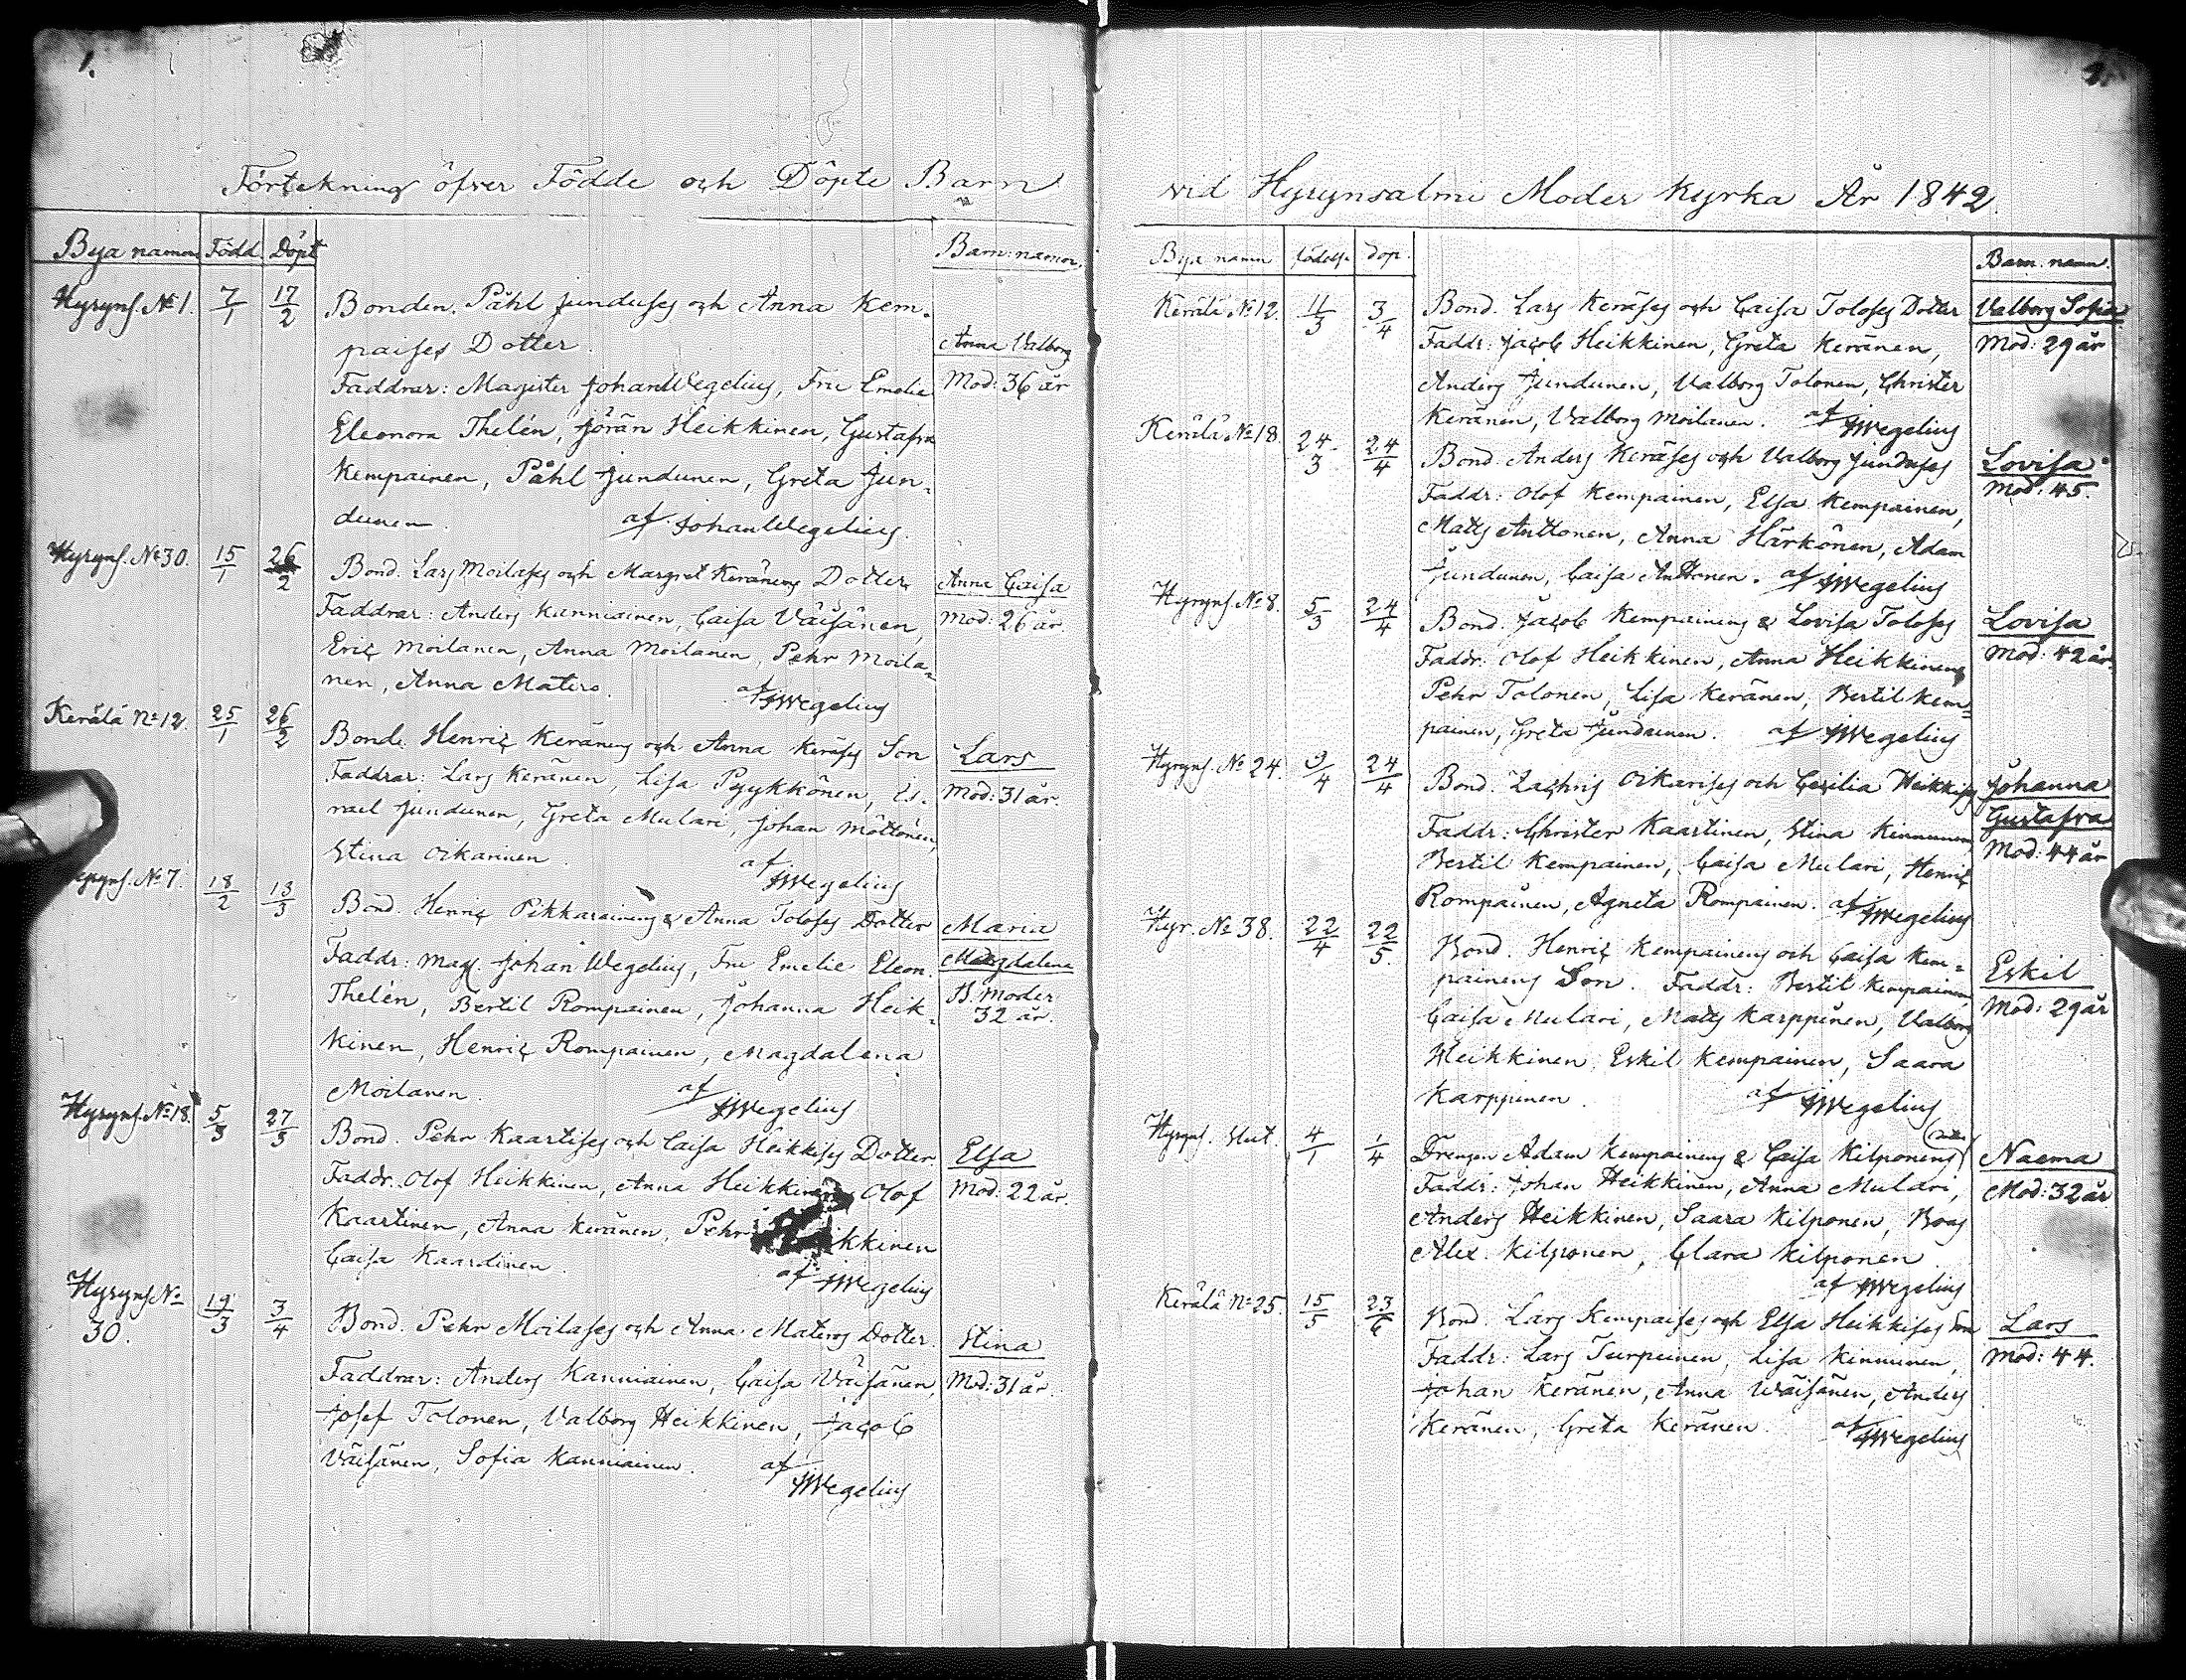 1.
Förtekning öfver Födde och Döpte Barn
Bya namn Född Döpt Barn: namn.
Hyryns. No 1. 7/1 17/2 Bonden Påhl Junduses och Anna Kem-
paises Dotter. Anna Valborg
Faddrar: Magister Johan Wegelius, Fru Emelie Mod: 36 år
Eleonora Thelén, Jörän Heikkinen, Gustafva
Kempainen, Påhl Jundunen, Greta Jun-
dunen. af Johan Wegelius.
Hyryns. No 30. 15/1 26/2 Bond. Lars Moilases och Margret Keränens Dotter Anna Caisa
Faddrar: Anders Kanniainen, Caisa Väisänen, Mod: 26 år
Eric Moilanen, Anna Moilanen, Pehr Moila-
nen, Anna Matero. af JWegelius
Kerälä No 12. 25/1 26/2 Bond. Henric Keränens och Anna Keräses Son Lars
Faddrar: Lars Keränen, Lisa Pyykkönen, Is- Mod: 31 år.
rael Jundunen, Greta Mulari, Johan Möttönen,
Stina Oikarinen. af JWegelius
No 7. 18/2 13/3 Bond. Henric Pikkarainens & Anna Toloses Dotter Maria
Faddr: Mag. Johan Wegelius, Fru Emelie Eleon. Magdalena
Thelén, Bertil Rompainen, Johanna Heik- B. Moder
32 år.
kinen, Henric Rompainen, Magdalena
Moilanen. af JWegelius
Hyryns. No 18. 5/3 27/3 Bond. Pehr Kaartises och Caisa Heikkises Dotter. Elsa
Faddr. Olof Heikkinen, Anna Heikkinen Olof Mod: 22 år.
Kaartinen, Anna Keränen, Pehr Heikkinen
Caisa Kaardinen. af JWegelius
Hyryns No
30. 19/3 3/4 Bond. Pehr Moilases och Anna Materos Dotter. Stina
Faddrar: Anders Kanniainen, Caisa Väisänen, Mod: 31 år.
Josef Tolonen, Valborg Heikkinen, Jacob
Väisänen, Sofia Kanniainen. af JWegelius
vid Hyrynsalmi Moder Kyrka År 1842.
Bya namn födelse dop. Barn. namn.
Kerälä No 12. 11/3 3/4 Bond. Lars Keräses och Caisa Toloses Dotter Valborg Sofia
Faddr: Jacob Heikkinen, Greta Keränen, Mod: 29 år
Anders Jundunen, Valborg Tolonen, Christer
Keränen, Valborg Moilanen. af JWegelius
Kerälä No 18. 24/3 24/4 Bond. Anders Keräses och Valborg Junduses Lovisa
Faddr: Olof Kempainen, Elsa Kempainen, Mod: 45.
Matts Anttonen, Anna Härkönen, Adam
Jundunen, Caisa Anttonen. af JWegelius
Hyryns. No 8. 5/3 24/4 Bond. Jacob Kempainens & Lovisa Toloses Lovisa
Faddr: Olof Heikkinen, Anna Heikkinen, Mod: 42 år
Pehr Tolonen, Lisa Keränen, Bertil Kem-
painen, Greta Jundunen. af JWegelius
Hyryns. No 24. 9/4 24/4 Bond. Zachris Oikarises och Cecilia Heikkises Johanna
Gustafva
Faddr: Christer Kaartinen, Stina Kinnunen, Mod: 44 år
Bertil Kempainen, Caisa Mulari, Henric
Rompainen, Agneta Rompainen. af JWegelius
Hyr. No 38. 22/4 22/5. Bond. Henric Kempainens och Caisa Kem-
painens Son. Faddr: Bertil Kempainen, Eskil
Caisa Mulari, Matts Karppinen, Valborg Mod: 29 år
Heikkinen, Eskil Kempainen, Saara
Karppinen. af JWegelius
Hyryns. Slut. 4/1 1/4 Drengen Adam Kempainens & Caisa Kilponens (dotter) Naema
Faddr: Johan Heikkinen, Anna Mulari, Mod: 32 år
Anders Heikkinen, Saara Kilponen, Boas
Alex. Kilponen, Clara Kilponen.
af JWegelius
Kerälä No 25. 15/5 23/6 Bond. Lars Kempaises och Elsa Heikkises Son Lars
Faddr: Lars Turpeinen, Lisa Kinnunen, Mod: 44.
Johan Keränen, Anna Wäisänen, Anders
Keränen, Greta Keränen. af JWegelius